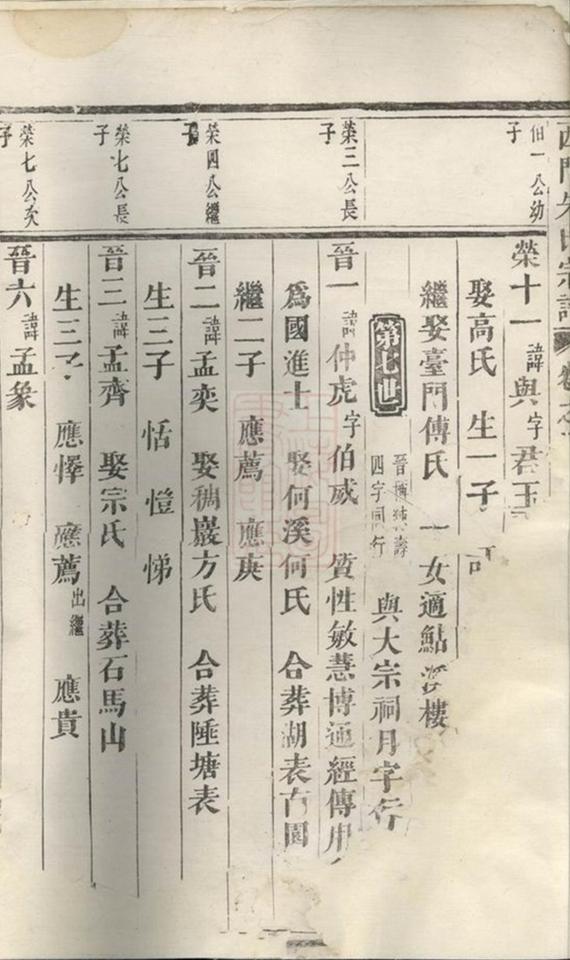 西門朱氏宗譜 卷之
伯一公幼子
榮十一 諱與 字君玉
娶高氏 生一子
繼娶臺門傅氏 一女適鮎 樓
第七世
晉 四字同行 與大宗祠月字行
榮三公長子
晉一 諱仲虎 字伯威 質性敏慧博通經傳
爲國進士 娶何溪何氏 合葬湖表古園
繼二子 應薦 應庚
榮四公繼子
晉二 諱孟奕 娶稠巖方氏 合葬陲塘表
生三子 恬 愷 悌
榮七公長子
晉三 諱孟齊 娶宗氏 合葬石馬山
生三子 應懌 應薦 出繼 應貴
榮七公次子
晉六 諱孟象